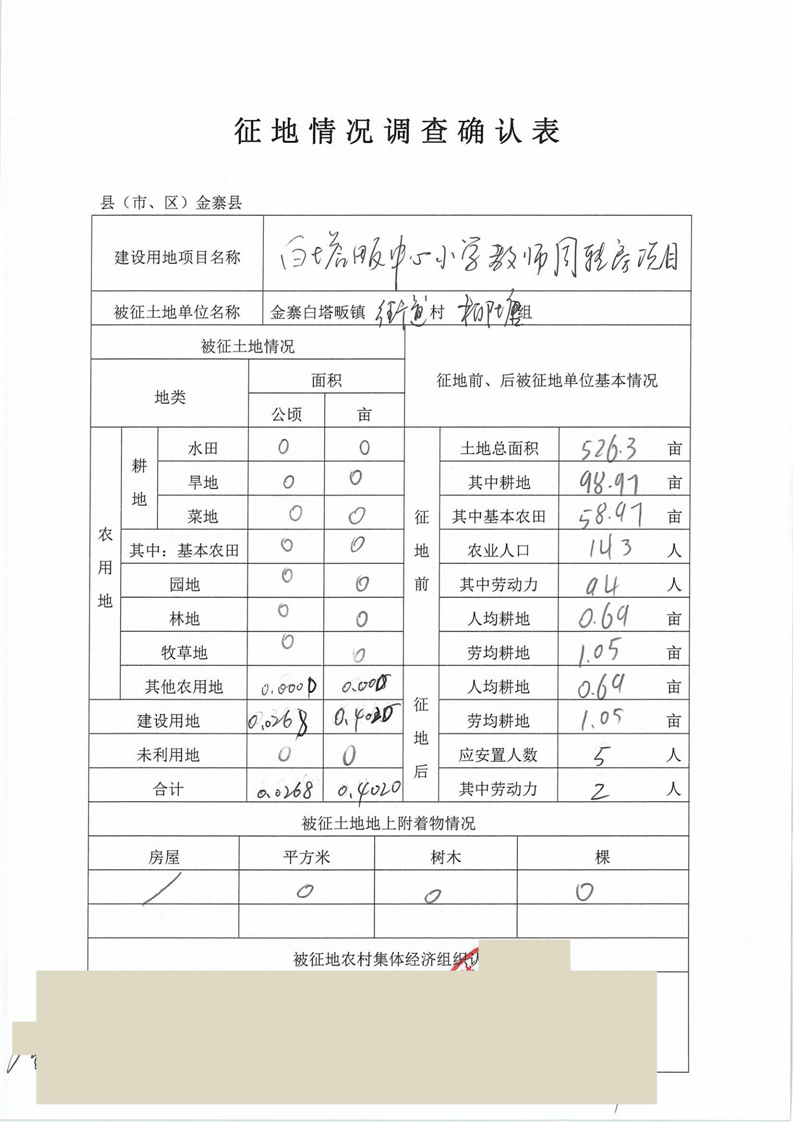 征地情况调查确认表
县（市、区）金寨县
建设用地项目名称 白塔畈中心小学教师周转房项目
被征土地单位名称 金寨白塔畈镇 街道 村 柳塘 组
被征土地情况 征地前、后被征地单位基本情况
地类 面积
公顷 亩
农用地 耕地 水田 0 0 征地前 土地总面积 526.3 亩
旱地 0 0 其中耕地 98.97 亩
菜地 0 0 其中基本农田 58.97 亩
其中：基本农田 0 0 农业人口 143 人
园地 0 0 其中劳动力 94 人
林地 0 0 人均耕地 0.69 亩
牧草地 0 0 劳均耕地 1.05 亩
其他农用地 0.0000 0.000 征地后 人均耕地 0.69 亩
建设用地 0.0268 0.4020 劳均耕地 1.05 亩
未利用地 0 0 应安置人数 5 人
合计 0.0268 0.4020 其中劳动力 2 人
被征土地地上附着物情况
房屋 平方米 树木 棵
/ 0 0 0
被征地农村集体经济组织